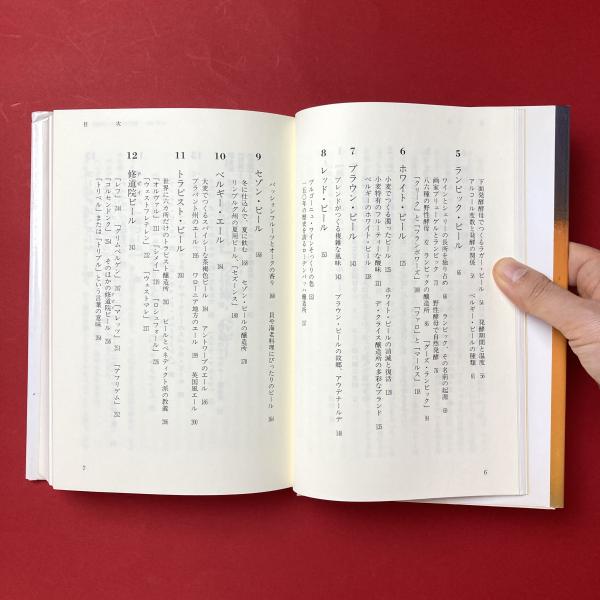 下面発酵酵母でつくるラガー・ビール 54 発酵期間と温度
アルコール度数と発酵の関係 56 ベルギー・ビールの種類 61
5 ランビック・ビール 65
ワインとシェリーの長所を独り占め 66 ランビック、その名前の起源
画家ブリューゲルとランビック 71 野性酵母で自然発酵
八六種の野性酵母 ランビックの醸造所 「グーズ・ランビック」
「クリーク」と「フランボワーズ」 「ファロ」と「マールス」
6 ホワイト・ビール
小麦でつくる濁ったビール ホワイト・ビールの消滅と復活
小麦特有のフルーティーな酸味 デ・クライス醸造所の多彩なブランド
ベルギーのホワイト・ビール
7 ブラウン・ビール
ブレンドがつくる複雑な風味 ブラウン・ビールの故郷、アウデナールデ
8 レッド・ビール
ブルゴーニュ・ワインそっくりの色
一五〇年の歴史を誇るローデンバッハ醸造所
パッションフルーツとオークの香り 貝や海老料理にぴったりのビール 164
9 セゾン・ビール
冬に仕込んで、夏に飲む セゾン・ビールの醸造所
リンブルグ州の夏用ビール、「セズーンス」
10 ベルギー・エール
大麦でつくるスパイシーな茶褐色ビール アントワープのエール
ブラバント州のエール ワローニア地方のエール 英国風エール 200
11 トラピスト・ビール
世界に六カ所だけのトラピスト醸造所 ビールとベネディクト派の教義
「オルヴァル」 「シメイ」 「ロシュフォール」
「ウェストフレテレン」 「ウェストマル」
12 修道院ビール
「レフ」 「グリムベルゲン」 「マレッツ」 「アフリゲム」 252
「コルセンドンク」 そのほかの修道院ビール
「トリペル」または「トリプル」という言葉の意味
6
目次
7